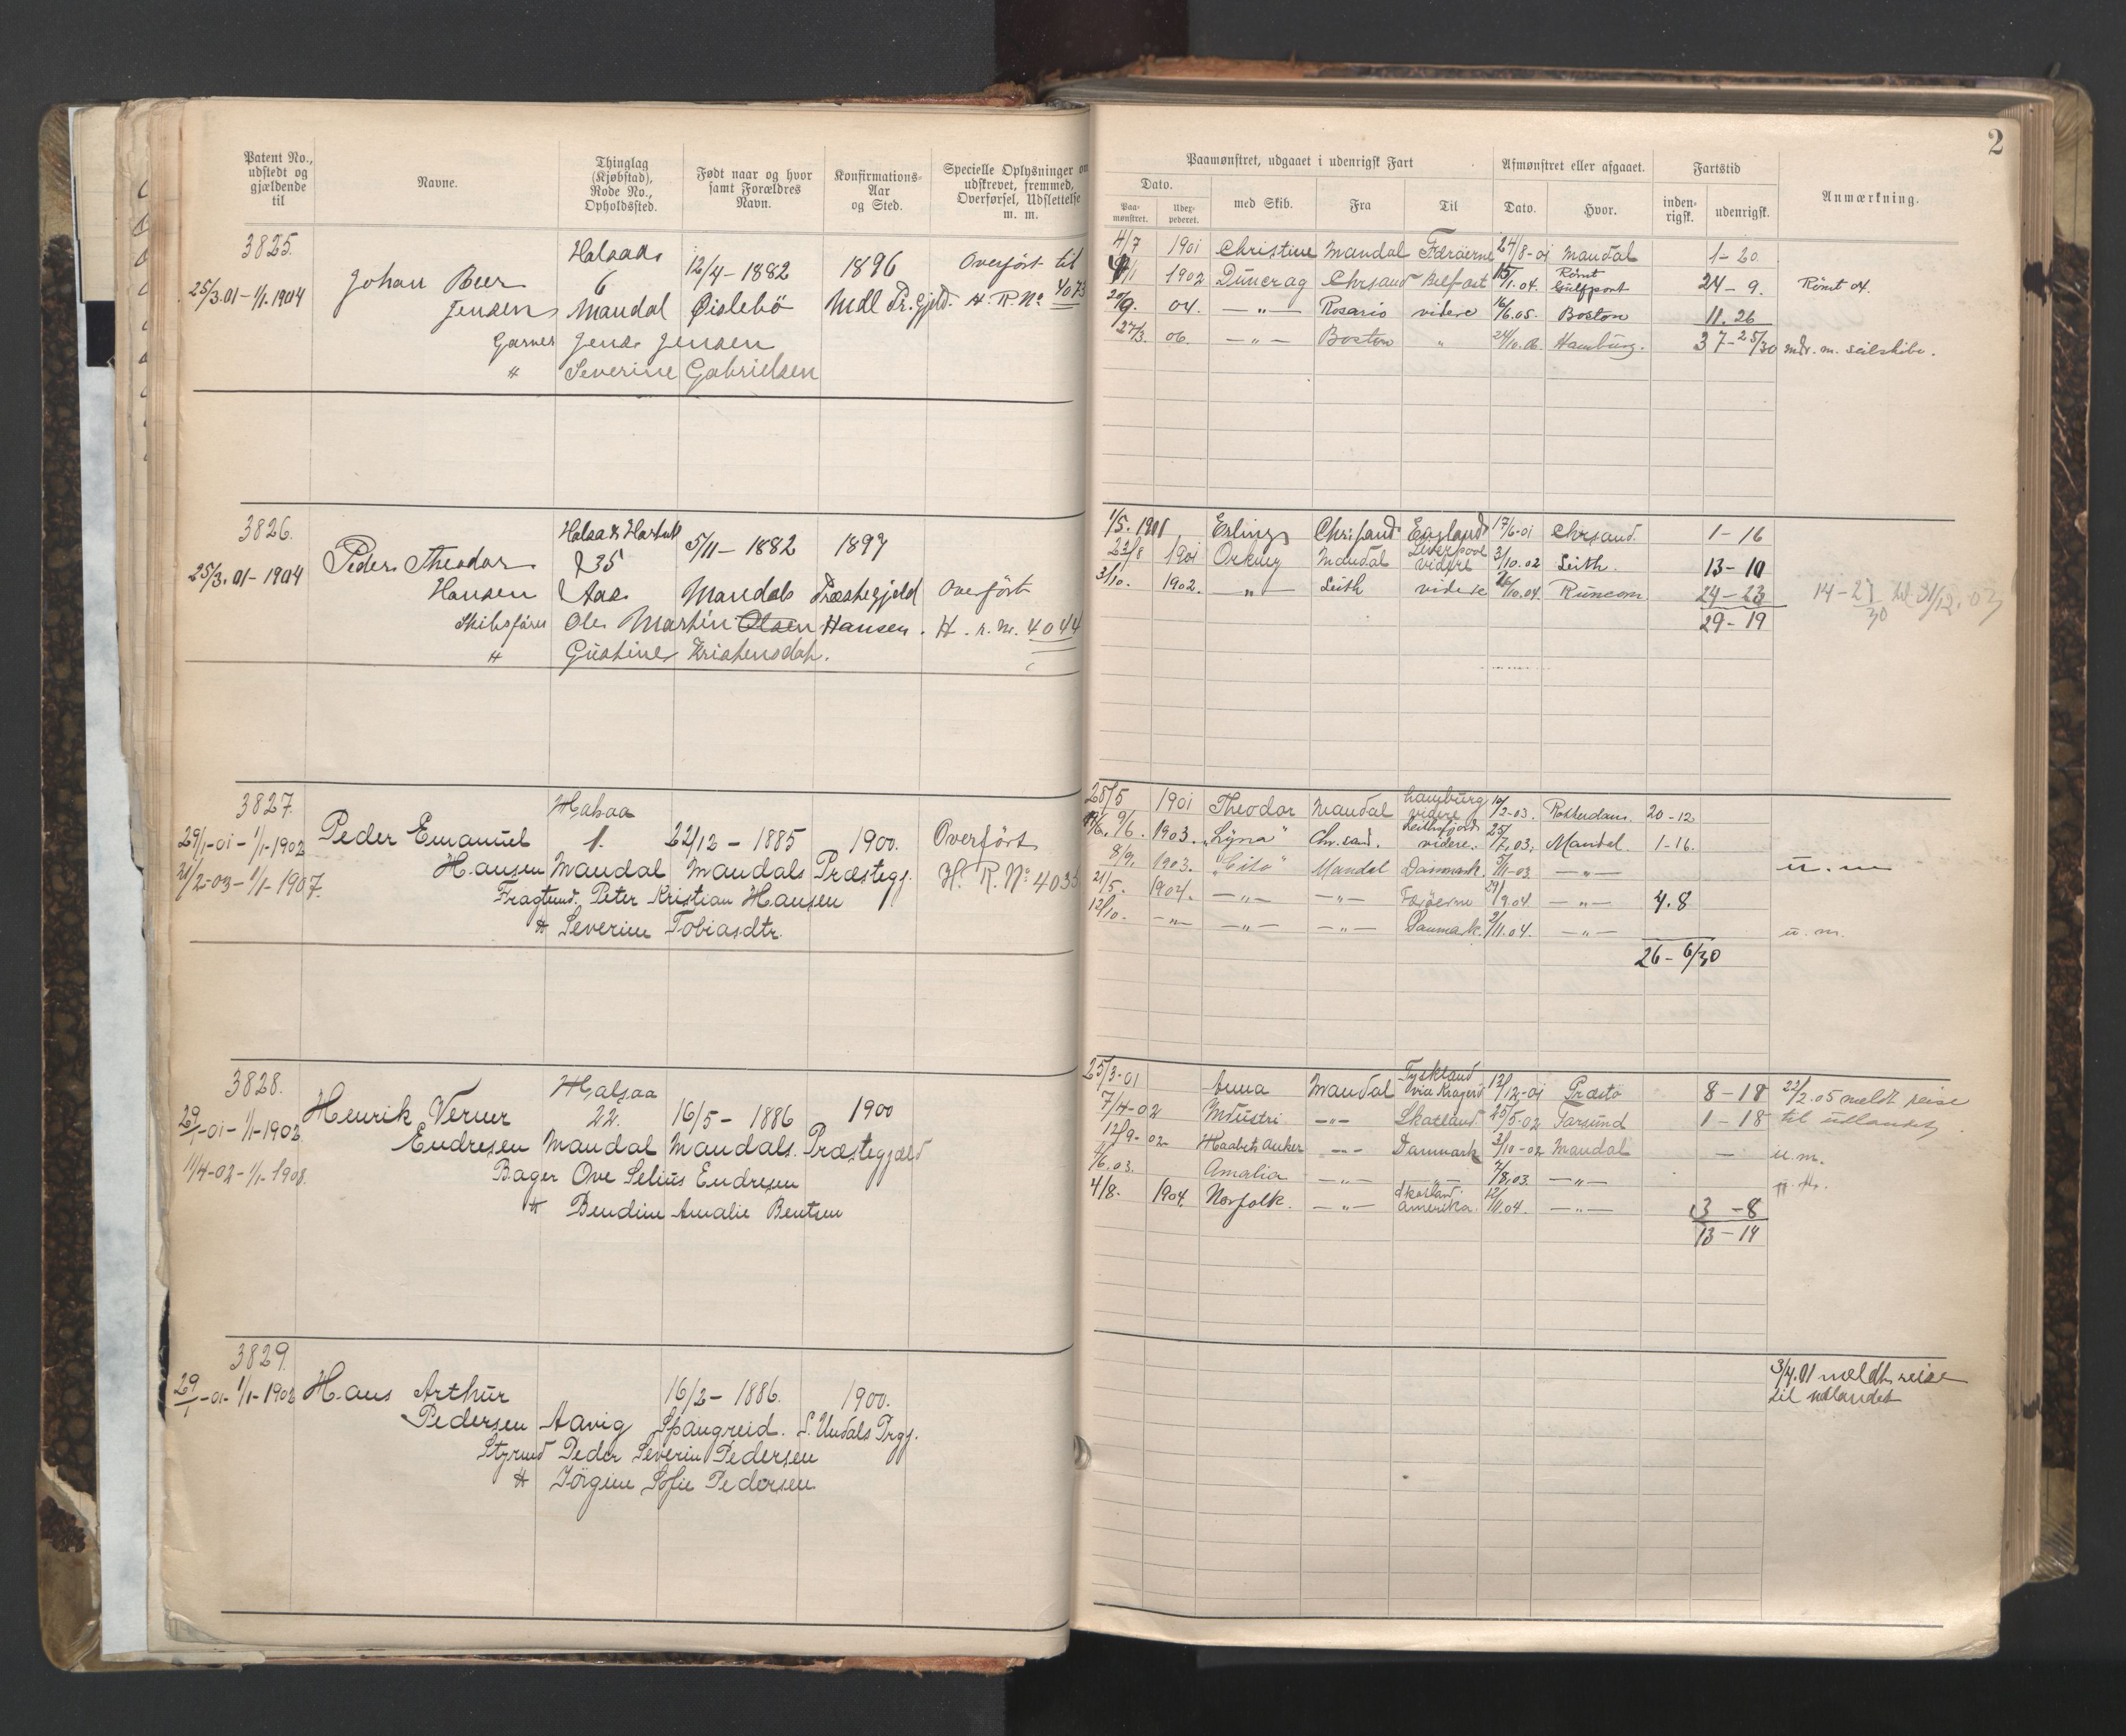 2
Patent No., udstedt og gjældende til
Navne.
Thinglag (Kjøbstad), Rode No., Opholdssted.
Født naar og hvor samt Forældres Navn.
Konfirmations-Aar og Sted.
Specielle Oplysninger om udskrevet, fremmed, Overførsel, Udslettelse m. m.
Paamønstret, udgaaet i udenrigsk Fart
Afmønstret eller afgaaet.
Fartstid
Anmærkning.
Dato.
Paa-mønstret.
med Skib.
Fra
Til
Dato.
Hvor.
inden-rigsk.
udenrigsk.
3825.
Halsaa
12/4 - 1882
1896
Overført til
25/3.01 - 1/1.1904
Johan Beer
6
Jensen
Mandal
Øislebö
Mdl Pr.gjeld.
H. R No 4073
Garver Jens Jensen
" Severine Gabrielsen
4/7 1901 Christine Mandal Færøerne 24/8-01 Mandal 1-20
1902 Dunerag Chrsand Belfast 15/1.04. Rømt Gulfport 24-9. Rømt 04.
20/9. 04. -"- Rosario videre 16/6.05. Boston 11.26
27/3. 06. -"- Boston " 24/10.06. Hamburg. 37-25/30 mdr. m. seilskibe.
3826.
Halsaa & Hartmk
5/11 - 1882
1897
25/3.01 - 1904
Peder Theodor
235
Hansen
Aas
Mandals Præstegjeld
Overført
Skibsfører Ole Martin Olsen Hansen.
H. r. Nr. 4044
" Gustine Kristensdat.
1/5. 1901 Erling Chrisand England 17/6-01 Chrsand. 1-16
23/8 1901 Orkney Mandal Liverpool videre 3/10.02 Leith. 13-10
3/10. 1902. -"- Leith videre 26/10.04. Runcorn 24-23
29-19
3827.
Halsaa
29/1-01 - 1/1-1902
Peder Emanuel
1.
22/12 - 1885
1900.
Overført
21/2-03 - 1/1-1907.
Hansen Mandal Mandals Præstegj.
H. R. No 4035
Fragtmd. Peter Kristian Hansen
" Severine Tobiasdtr.
28/5 1901 Theodor Mandal Hamburg videre 10/2-03. Rotterdam. 20-12
9/6. 1903. "Lyna" Chr.sand. videre. 25/7.03. Mandal. 1-16.
8/9. 1903. "Cito" Mandal Danmark 5/11-03. -"- u. m
21/5. 1904. -"- -"- Færøerne 29/ 1904. -"- 4.8
12/10. -"- -"- -"- Danmark. 2/11.04. -"- u. m.
26-6/30
3828.
Halsaa
29/1-01 - 1/1-1902
Henrik Verner
22.
16/5 - 1886
1900
11/4-02 - 1/1-1908.
Endresen Mandal Mandals. Præstegjæld
Bager Ove Selius Endresen
" Bendine Amalie Bentsen
25/3-01 Anna Mandal Tyskland via Kragerö 12/12-01 Præsto 8-18 22/2.05 meldt reise
7/4-02 Industri -"- Skotland 25/5-02 Farsund 1-18 til udlandet.
12/9-02 Haabets Anker -"- Danmark 3/10-02 Mandal - u. m.
11/6.03. Amalia -"- -"- 7/8.03. -"-
4/8. 1904. Norfolk. -"- Skotland. Amerika. 12/11.04. -"- 3-8
13-14
3829.
29/1-01 1/1-1902
Hans Arthur
16/2 - 1886.
1900.
Pedersen Aavig Spangreid. S. Undals Prgj.
Styrmd Peder Severin Pedersen
" Jörgine Sofie Pedersen
3/4.01 meldt reise
til udlandet